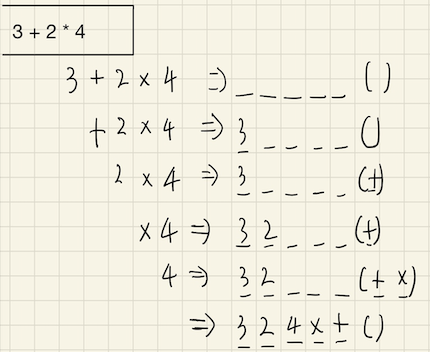 3 + 2 * 4
3 + 2 × 4 ⇒ _ _ _ _ _ ( )
+ 2 × 4 ⇒ 3 _ _ _ _ ()
2 × 4 ⇒ 3 _ _ _ _ (+)
× 4 ⇒ 3 2 _ _ _ (+)
4 ⇒ 3 2 _ _ _ (+ ×)
⇒ 3 2 4 × + ()